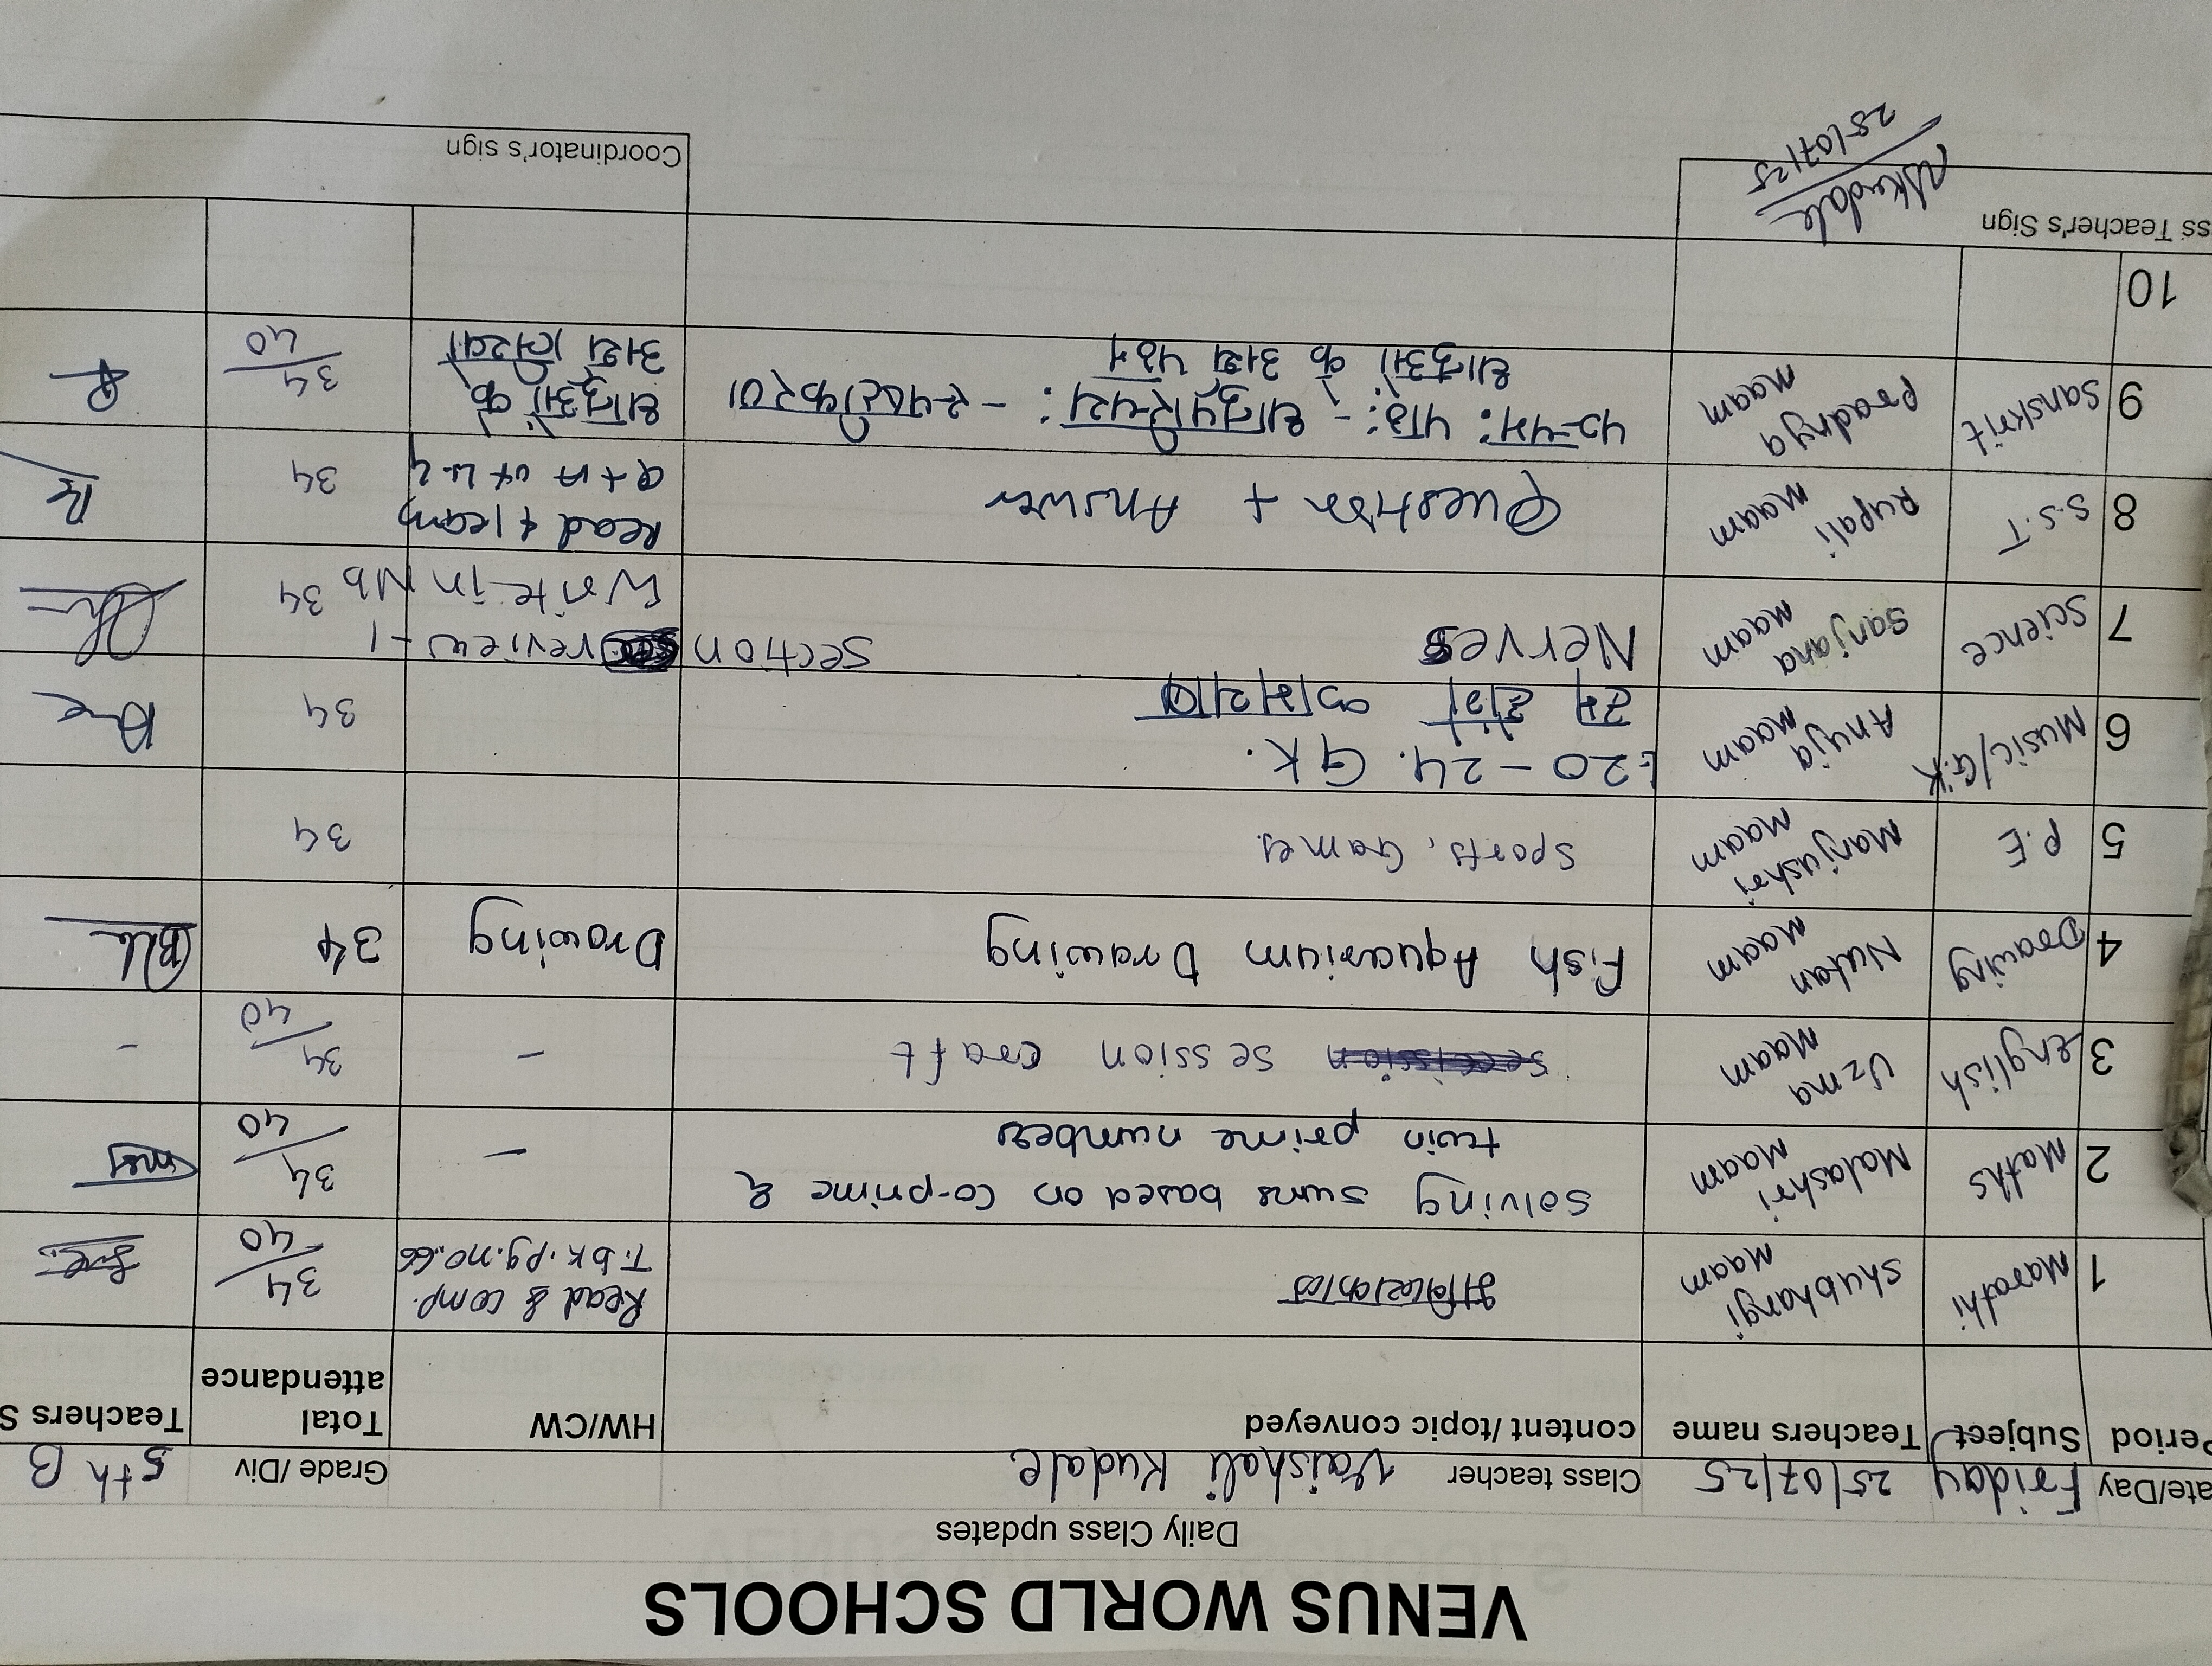 VENUS WORLD SCHOOLS
Daily Class updates
ate/Day Friday 25/07/25 Class teacher Vaishali Kudale Grade/Div 5th B
Period Subject Teachers name content/topic conveyed HW/CW Total attendance Teachers S
1 Marathi Shubhangi Maam Read & comp. T.bk.pg.no.66 34/40
2 Maths Malashri Maam solving sums based on co-prime & 34/40
twin prime numbers
3 english Uzma Maam session craft - 34/40 -
4 Drawing Nutan Maam Fish Aquarium Drawing Drawing 34
5 P.E Manjushri Maam sports, Games 34
6 Music/G.K Anuja Maam 20-24. GK. 34
7 Science Sanjana Maam Nerves section review-1
Write in Nb 34
8 S.S.T Rupali Maam Question + Answer Read & learn
Q+A of L-2 34
9 Sanskrit Pradnya Maam पञ्चमः पाठः - धातुपरिचयः - स्पष्टीकरण धातुओं के 34/40
धातुओं के अर्थ पठन अर्थ लिखो
10
ss Teacher's Sign VSKudale Coordinator's sign
25/07/25